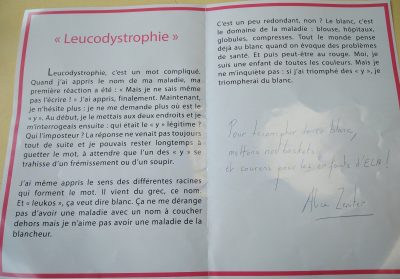 « Leucodystrophie »
Leucodystrophie, c'est un mot compliqué.
Quand j'ai appris le nom de ma maladie, ma
première réaction a été : « Mais je ne sais même
pas l'écrire ! » J'ai appris, finalement. Maintenant,
je n'hésite plus : je ne me demande plus où est le
« y ». Au début, je le mettais aux deux endroits et je
m'interrogeais ensuite : qui était le « y » légitime ?
Qui l'imposteur ? La réponse ne venait pas toujours
tout de suite et je pouvais rester longtemps à
guetter le mot, à attendre que l'un des « y » se
trahisse d'un frémissement ou d'un soupir.
J'ai même appris le sens des différentes racines
qui forment le mot. Il vient du grec, ce nom.
Et « leukos », ça veut dire blanc. Ça ne me dérange
pas d'avoir une maladie avec un nom à coucher
dehors mais je n'aime pas avoir une maladie de la
blancheur.
C'est un peu redondant, non ? Le blanc, c'est
le domaine de la maladie : blouse, hôpitaux,
globules, compresses. Tout le monde pense
déjà au blanc quand on évoque des problèmes
de santé. Et puis peut-être au rouge. Moi, je
suis une enfant de toutes les couleurs. Mais je
ne m'inquiète pas : si j'ai triomphé des « y », je
triompherai du blanc.
Pour triompher de ce blanc,
mettons nos baskets
et courons pour les enfants d'ELA !
Alice Zeniter